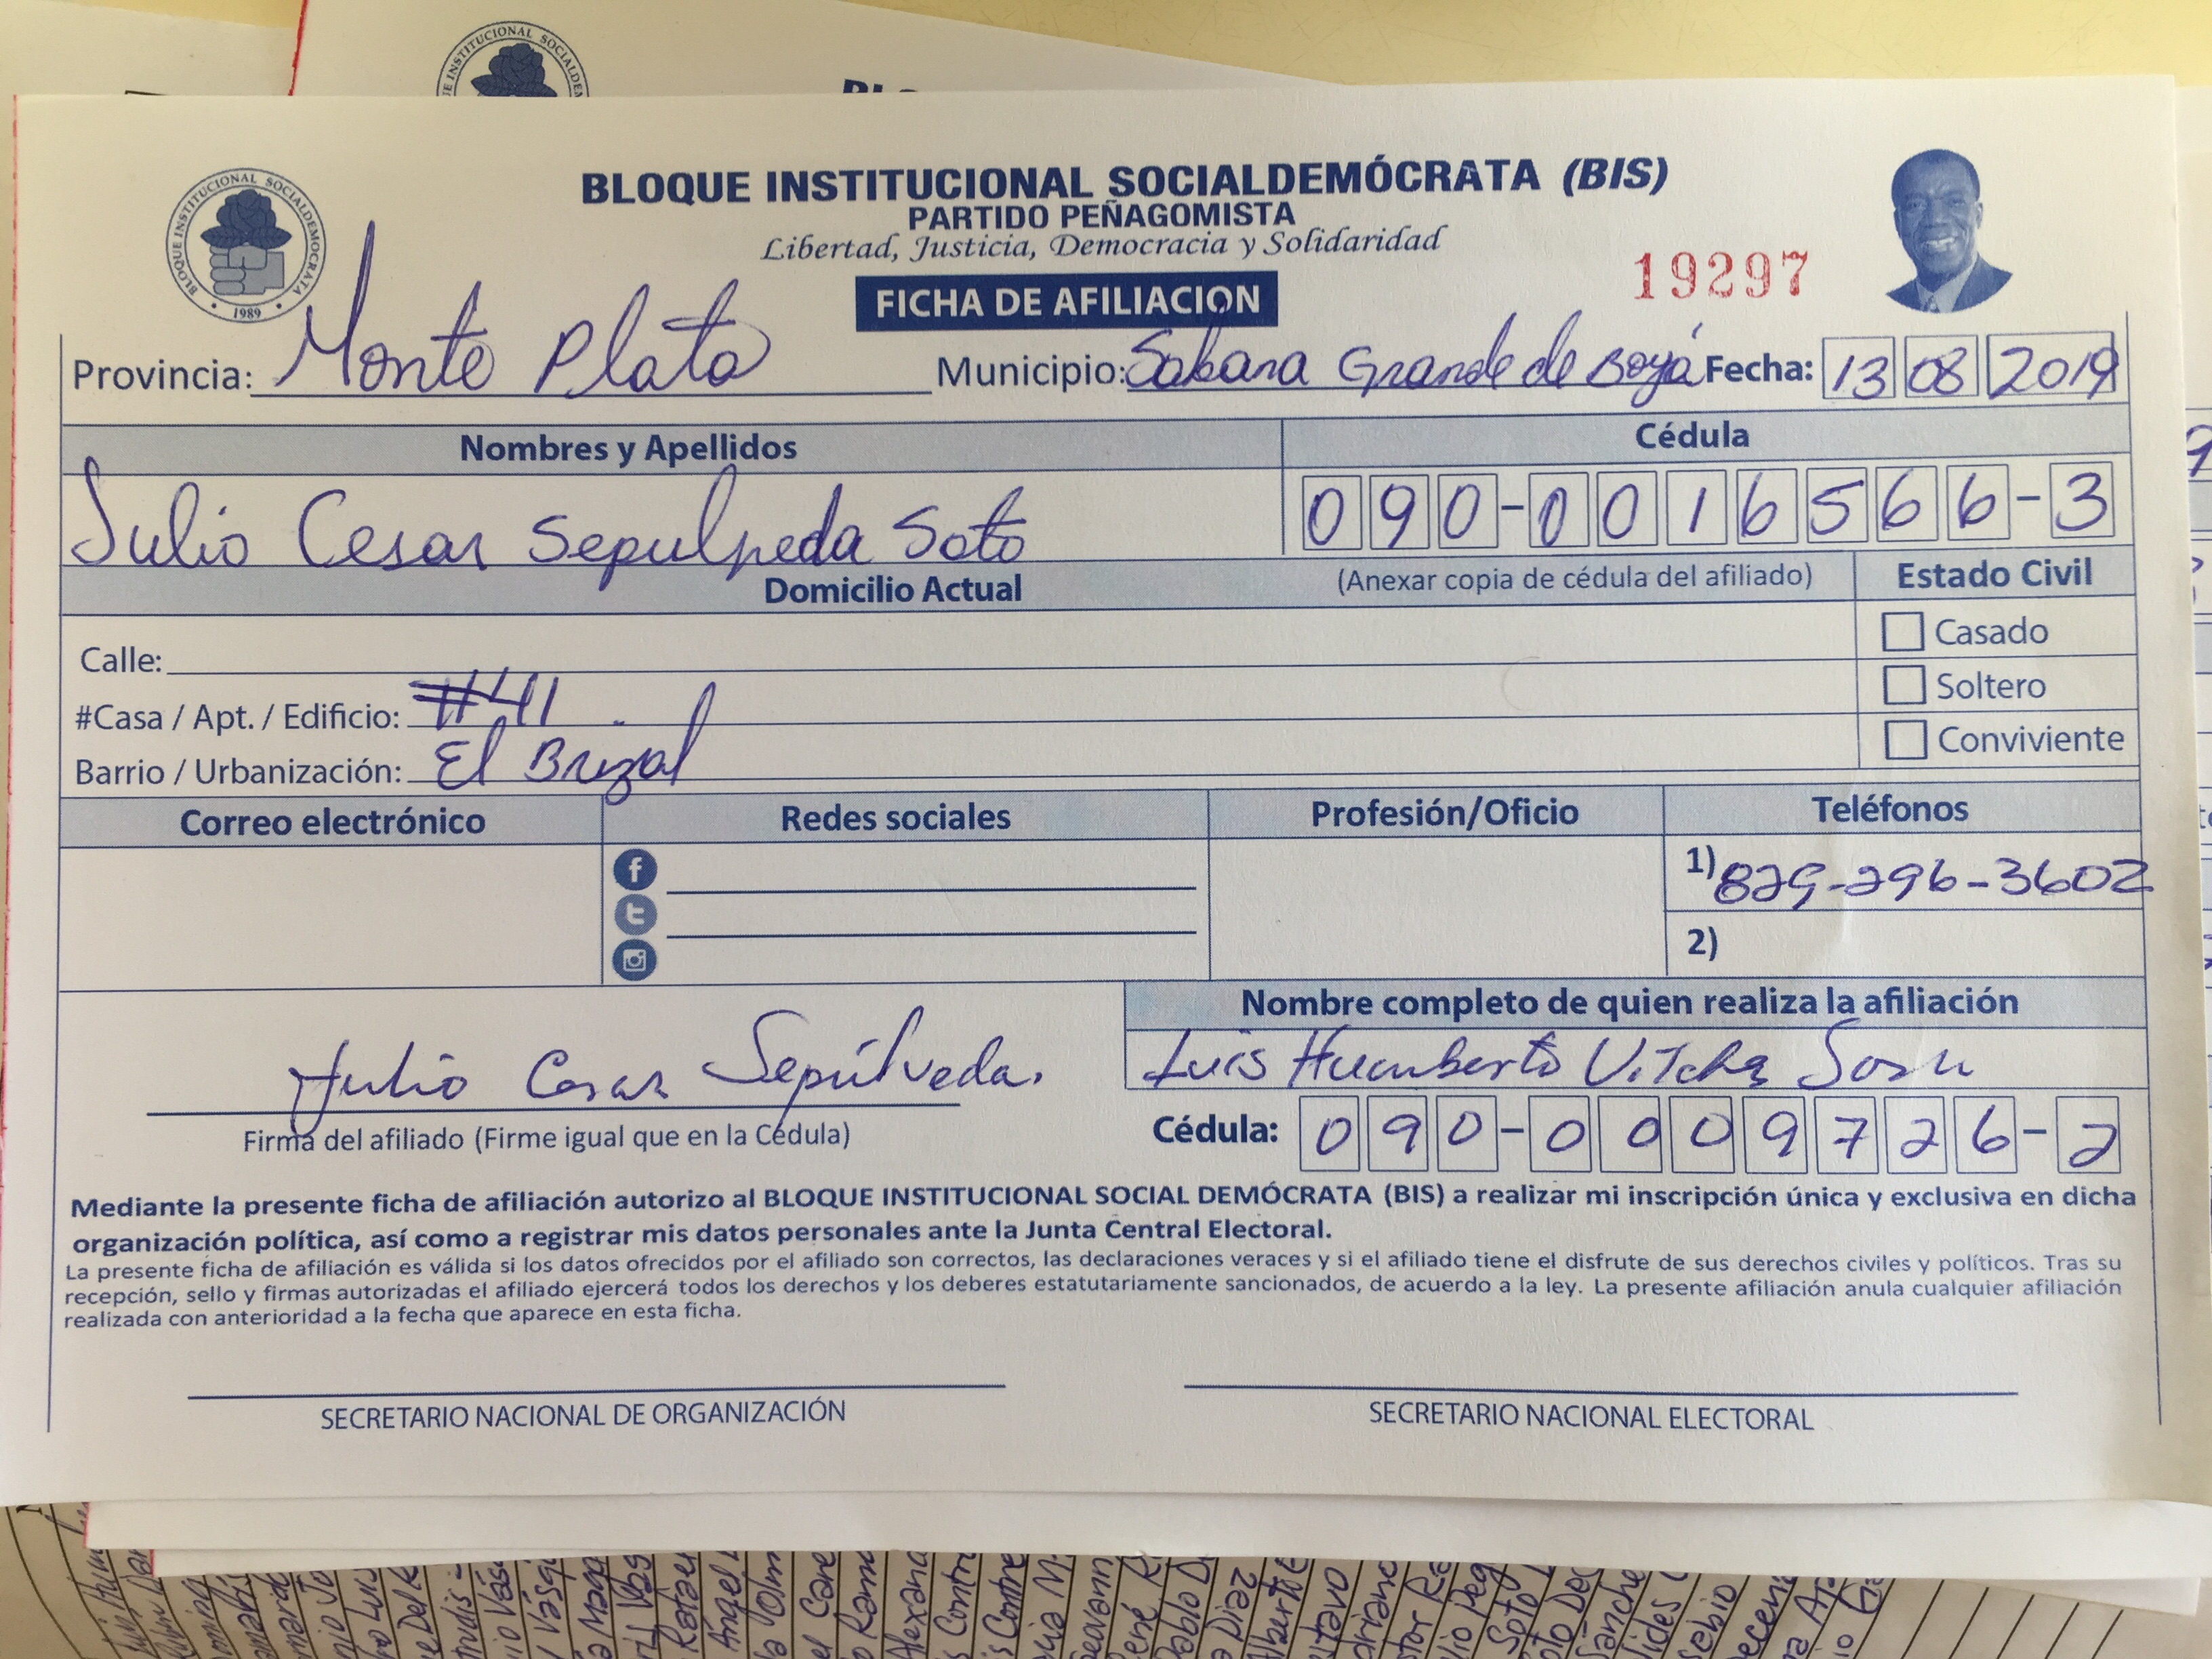 BLOQUE INSTITUCIONAL SOCIALDEMÓCRATA (BIS)
PARTIDO PEÑAGOMISTA
Libertad, Justicia, Democracia y Solidaridad
BLOQUE INSTITUCIONAL SOCIALDEMOCRATA
1989
19297
FICHA DE AFILIACION
Provincia: Monte Plata Municipio: Sabana Grande de Boyá Fecha: 13 08 2019
Nombres y Apellidos Cédula
Julio Cesar Sepulpeda Soto 090-0016566-3
Domicilio Actual (Anexar copia de cédula del afiliado) Estado Civil
Calle: Casado
#Casa / Apt. / Edificio: #41 Soltero
Barrio / Urbanización: El Brizal Conviviente
Correo electrónico Redes sociales Profesión/Oficio Teléfonos
1) 829-296-3602
2)
Nombre completo de quien realiza la afiliación
Julio Cesar Sepúlveda. Luis Humberto
Firma del afiliado (Firme igual que en la Cédula) Cédula: 090-0009726-2
Mediante la presente ficha de afiliación autorizo al BLOQUE INSTITUCIONAL SOCIAL DEMÓCRATA (BIS) a realizar mi inscripción única y exclusiva en dicha
organización política, así como a registrar mis datos personales ante la Junta Central Electoral.
La presente ficha de afiliación es válida si los datos ofrecidos por el afiliado son correctos, las declaraciones veraces y si el afiliado tiene el disfrute de sus derechos civiles y políticos. Tras su
recepción, sello y firmas autorizadas el afiliado ejercerá todos los derechos y los deberes estatutariamente sancionados, de acuerdo a la ley. La presente afiliación anula cualquier afiliación
realizada con anterioridad a la fecha que aparece en esta ficha.
SECRETARIO NACIONAL DE ORGANIZACIÓN SECRETARIO NACIONAL ELECTORAL